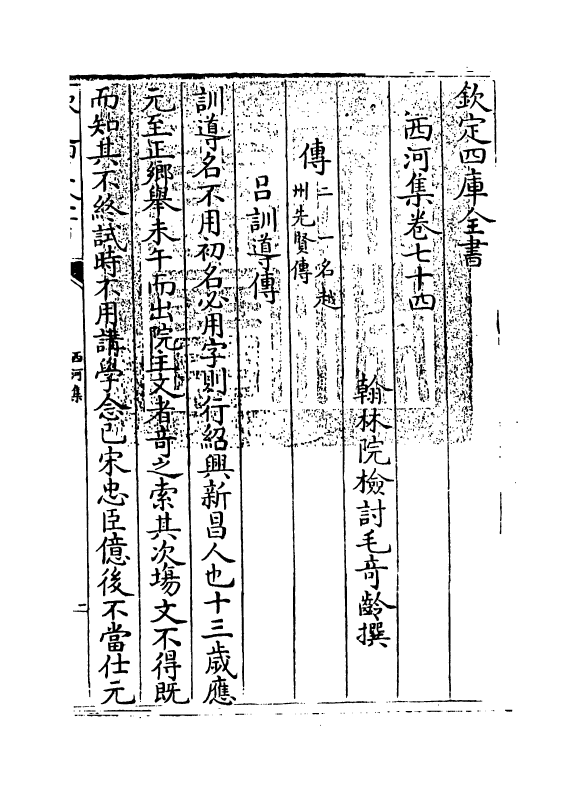 欽定四庫全書
西河集卷七十四
翰林院檢討毛奇齡撰
傳二一名越
州先賢傳
呂訓導傳
訓導名不用初名必用字則行紹興新昌人也十三歲應
元至正鄉舉未午而出院主文者奇之索其次場文不得既
而知其不終試時不用講學念已宋忠臣億後不當仕元
西河集
二